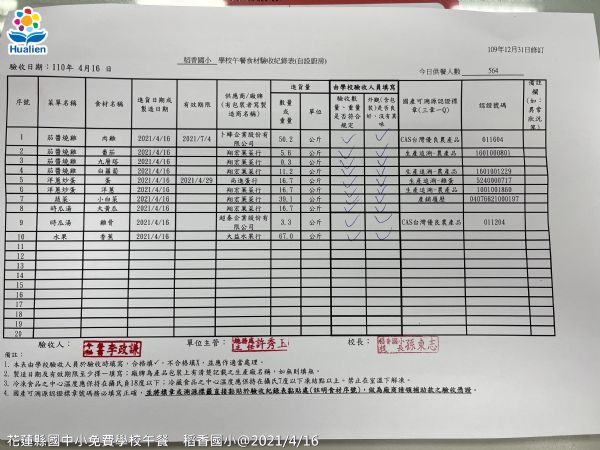 Hualien
109年12月31日修訂
稻香國小 學校午餐食材驗收紀錄表(自設廚房)
驗收日期：110年 4月16 日
今日供餐人數 564
序號 菜單名稱 食材名稱 進貨日期或製造日期 有效期限 供應商/廠牌(有包裝者寫製造商名稱) 進貨量 數量或重量 單位 由學校驗收人員填寫 驗收數量、重量是否符合規定 外觀(含包裝)是否良好、沒有異味 國產可溯源認證標章(三章一Q) 認證號碼 備註欄(如：異常狀況等)
1 茄醬燒雞 肉雞 2021/4/16 2021/7/4 卜蜂企業股份有限公司 50.2 公斤 CAS台灣優良農產品 011604
2 茄醬燒雞 番茄 2021/4/16 翔宏蔬菜行 5.6 公斤 生產追溯-農產品 1601000801
3 茄醬燒雞 九層塔 2021/4/16 翔宏蔬菜行 0.3 公斤
4 茄醬燒雞 白蘿蔔 2021/4/16 翔宏蔬菜行 11.2 公斤 生產追溯-農產品 1601901229
5 洋蔥炒蛋 蛋 2021/4/16 2021/4/29 尚進蛋行 16.7 公斤 生產追溯-雞蛋 5240000717
6 洋蔥炒蛋 洋蔥 2021/4/16 翔宏蔬菜行 16.7 公斤 生產追溯-農產品 1001001860
7 蔬菜 小白菜 2021/4/16 翔宏蔬菜行 39.1 公斤 產銷履歷 04076621000197
8 時瓜湯 大黃瓜 2021/4/16 翔宏蔬菜行 16.7 公斤
9 時瓜湯 雞骨 2021/4/16 超秦企業股份有限公司 3.3 公斤 CAS台灣優良農產品 011204
10 水果 香蕉 2021/4/16 大益水果行 67.0 公斤
11
12
13
14
15
16
17
18
19
20
驗收人： 李政謙 單位主管： 許秀玉 校長： 稻香國小校長 孫東志
備註：
1. 本表由學校驗收人員於驗收時填寫，合格填✓，不合格填X，並應作適當處理。
2. 製造日期及有效期限至少擇一填寫；廠牌為產品包裝上有清楚記載之生產廠名稱，如無則填無。
3. 冷凍食品之中心溫度應保持在攝氏負18度以下；冷藏食品之中心溫度應保持在攝氏7度以下凍結點以上。禁止在室溫下解凍。
4. 國產可溯源認證標章號碼務必填寫正確，並將標章或溯源標籤直接黏貼於驗收紀錄表黏貼處(註明食材序號)，做為廠商請領補助款之驗收憑證。
花蓮縣國中小免費學校午餐 稻香國小@2021/4/16